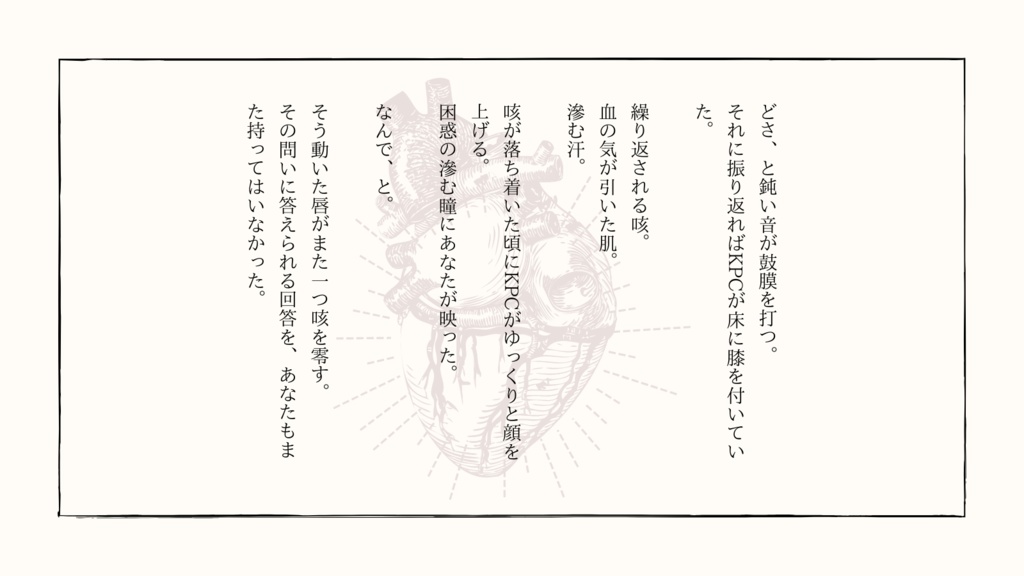 どさ、と鈍い音が鼓膜を打つ。
それに振り返ればKPCが床に膝を付いてい
た。
繰り返される咳。
血の気が引いた肌。
滲む汗。
咳が落ち着いた頃にKPCがゆっくりと顔を
上げる。
困惑の滲む瞳にあなたが映った。
なんで、と。
そう動いた唇がまた一つ咳を零す。
その問いに答えられる回答を、あなたもま
た持ってはいなかった。